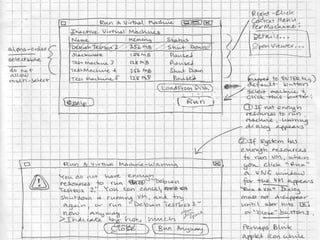 Run a Virtual Machine
Right-Click
Context Menu
Per Machine:
Inactive Virtual Machines
Name Memory Status
alpha-order
Debian Testbox 2 256 MB Shut Down
Details...
selectable
Slackware 128 MB Paused
Open Viewer...
do not
Test Machine 3 128 MB Paused
allow
Test Machine 4 256 MB Shut Down
multi-select
Test Machine 5 128 MB Paused
Load from Disk
mapped to ENTER key
default button
Select machine &
click this button:
Help
Run
① If not enough
resources to
run machine, warning
dialog appears
② If system has
enough resources
to run VM, when
you click "Run"
a VNC window
for the VM appears
Run a Virtual Machine-Warning
"Run a VM" Dialog
must not disappear
until user hits
or "close" button.
You do not have enough
resources to run "Debian
Testbox 2". You can cancel,
shutdown a running VM, and try
again, or run "Debian Testbox 2"
now anyway.
>Indicate by how much
Close Run Anyway
Perhaps Blink
Applet icon while